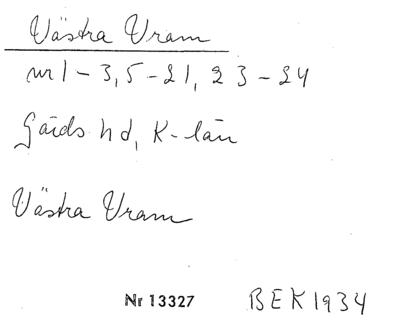 Västra Vram
nr 1-3, 5-21, 23-24
Gärds hd, K-län
Västra Vram
Nr 13327 BEK 1934